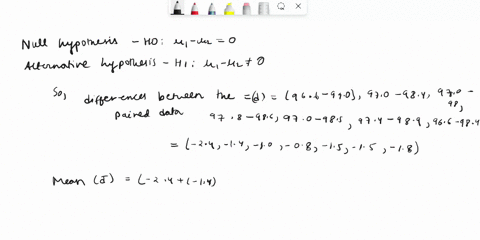 Null hypothesis - H0: μ₁-μ₂ = 0
Alternative hypothesis - H1: μ₁-μ₂ ≠ 0
So, differences between the =(d) = (96.6-99.0), 97.0-98.4, 97.0-98,
paired data 97.8-98.6, 97.0-98.5, 97.4-98.9, 96.6-98.4
= (-2.4, -1.4, -1.0, -0.8, -1.5, -1.5, -1.8)
Mean (d̄) = (-2.4+(-1.4)